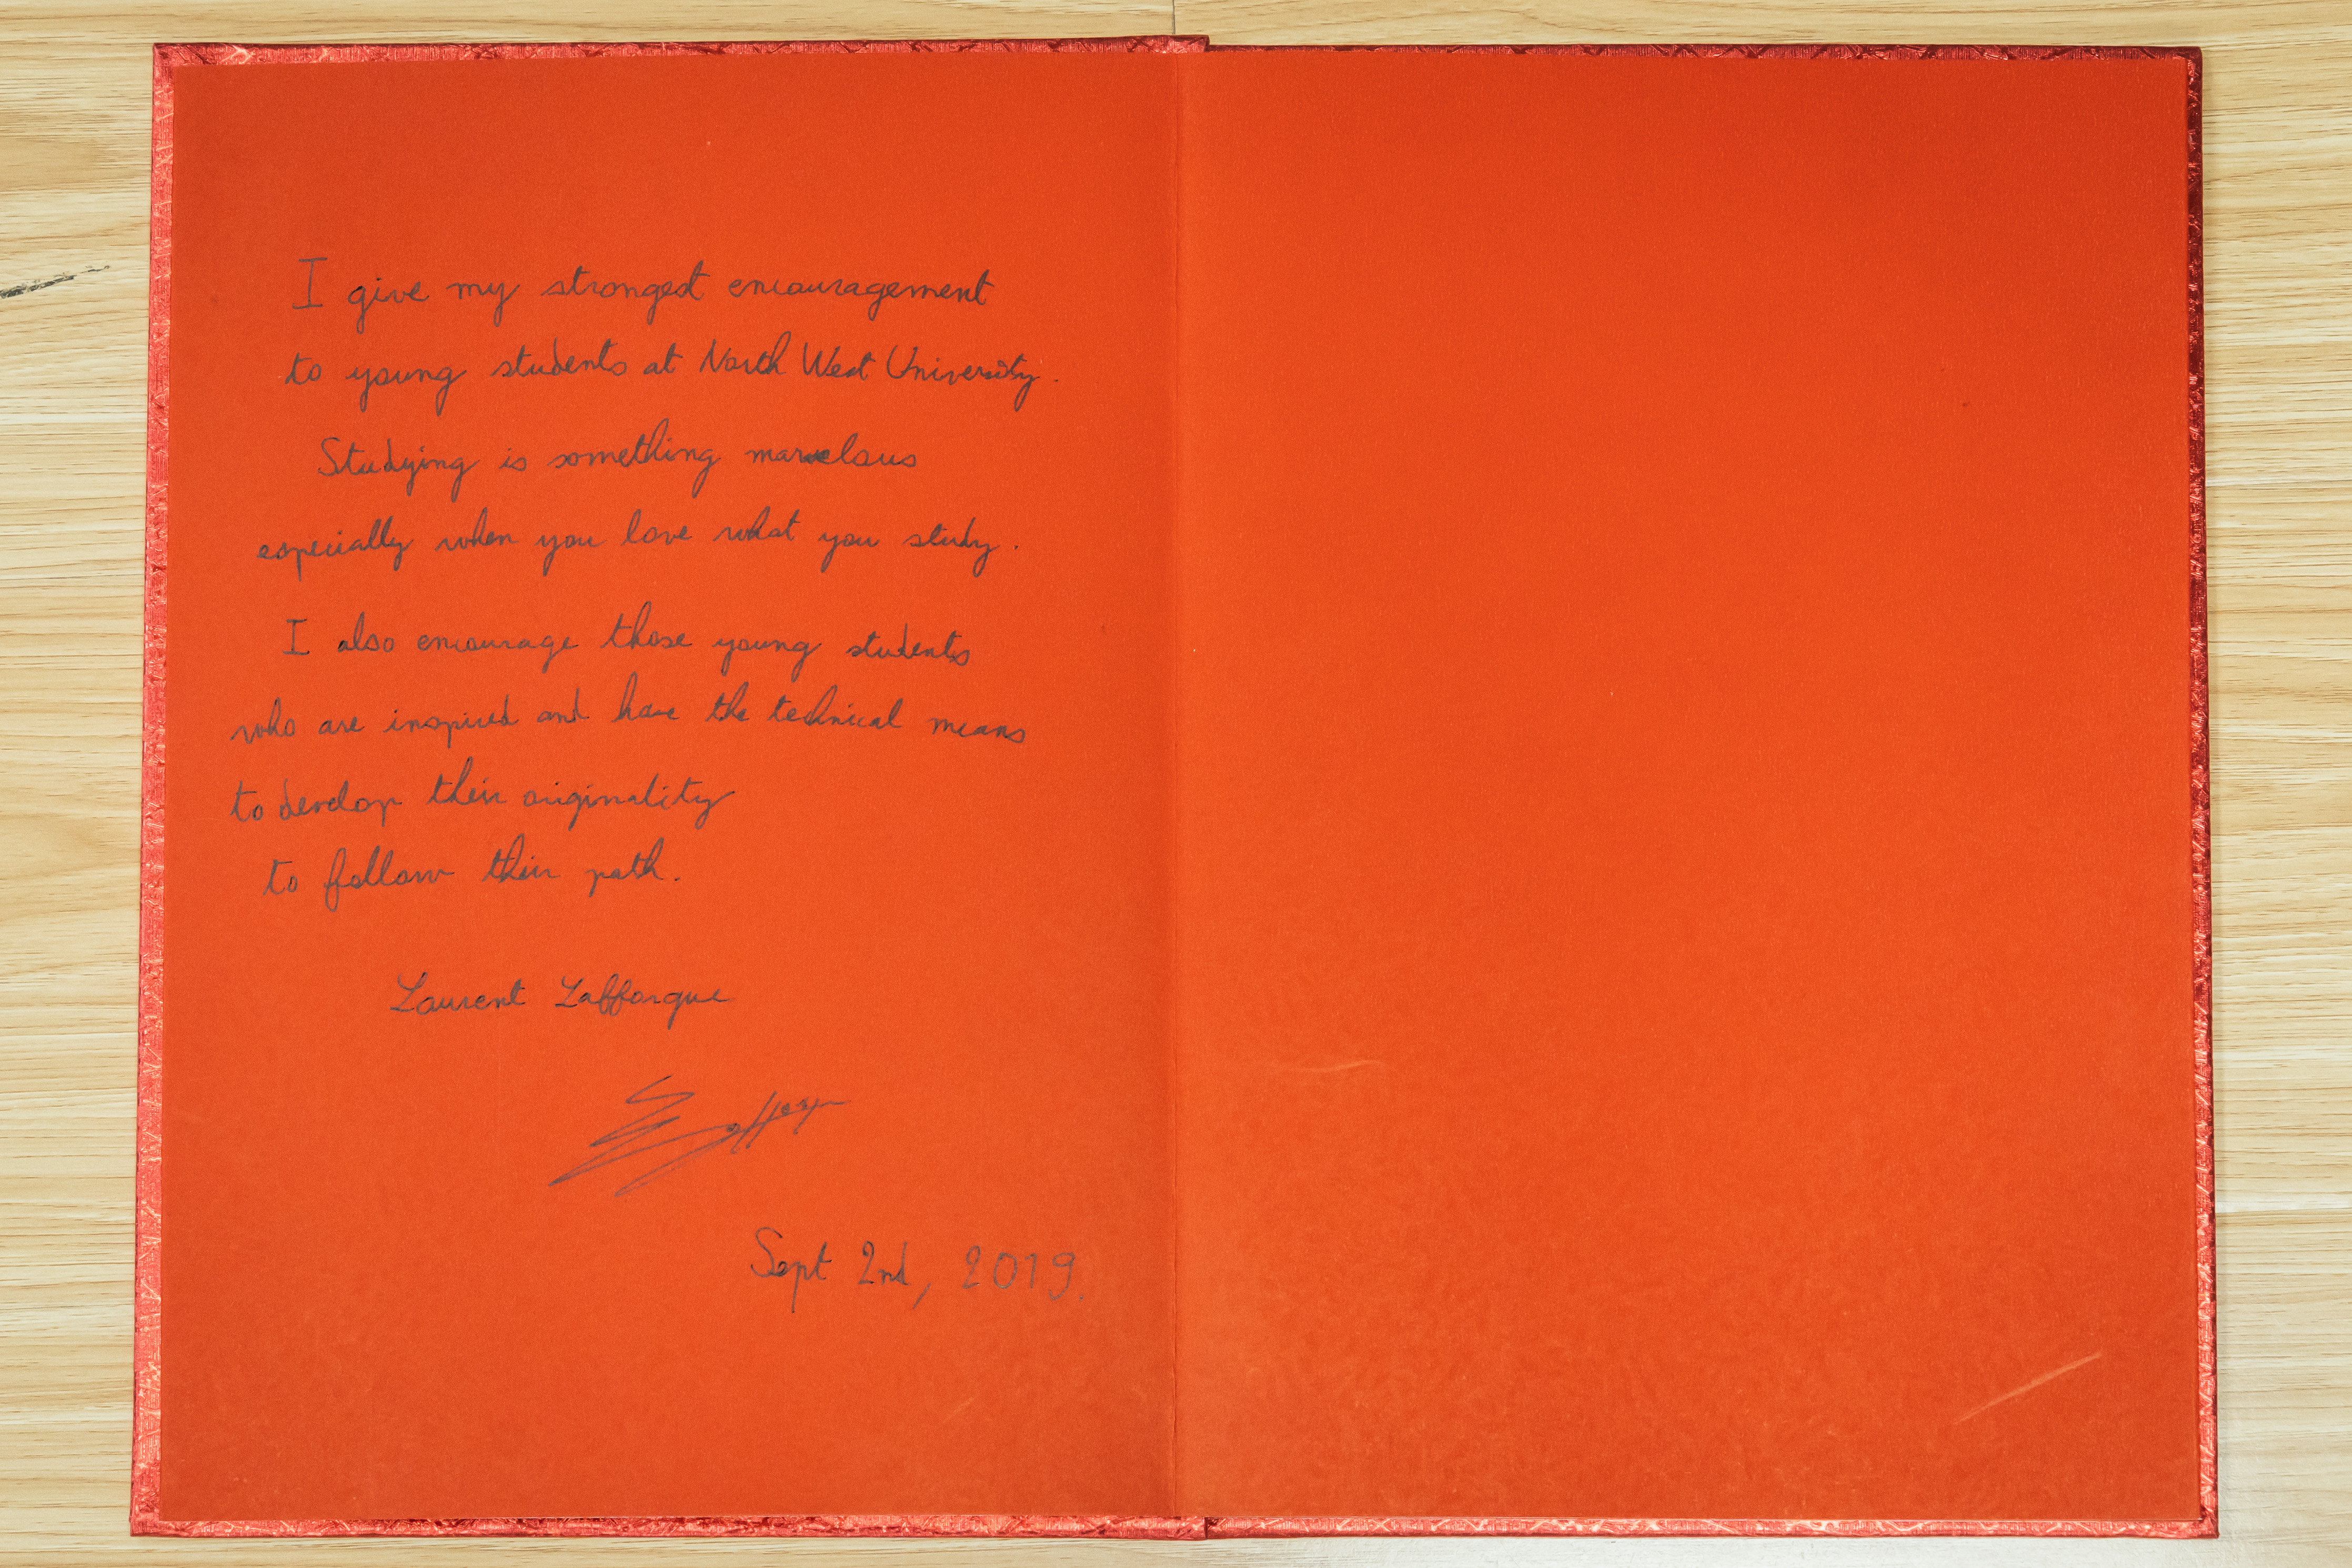 I give my strongest encouragement
to young students at North West University.
Studying is something marvelous
especially when you love what you study.
I also encourage those young students
who are inspired and have the technical means
to develop their originality
to follow their path.
Laurent Lafforgue
Lafforgue
Sept 2nd, 2019.